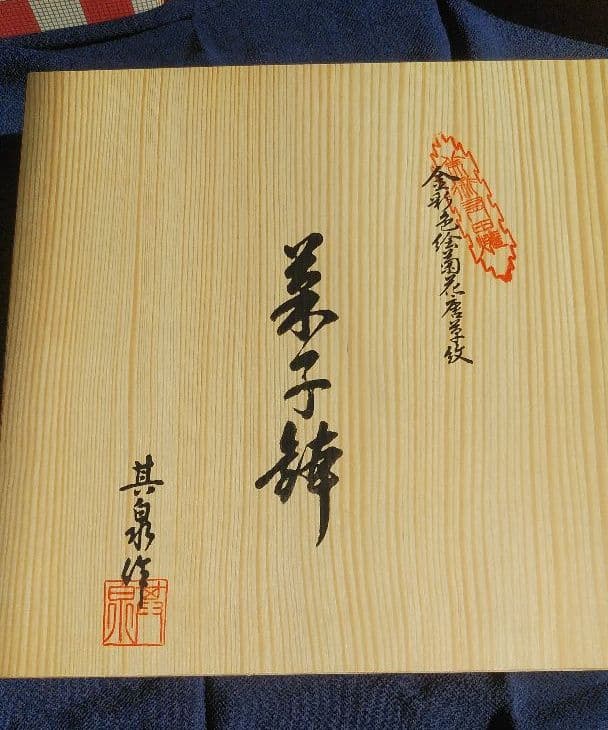 金彩色絵菊花唐草紋
菓子鉢
其泉作
其泉